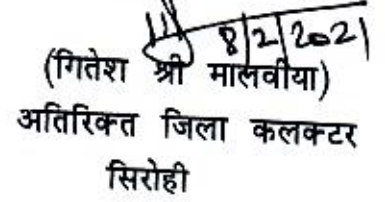 8/2/2021
(गितेश श्री मालवीया)
अतिरिक्त जिला कलक्टर
सिरोही